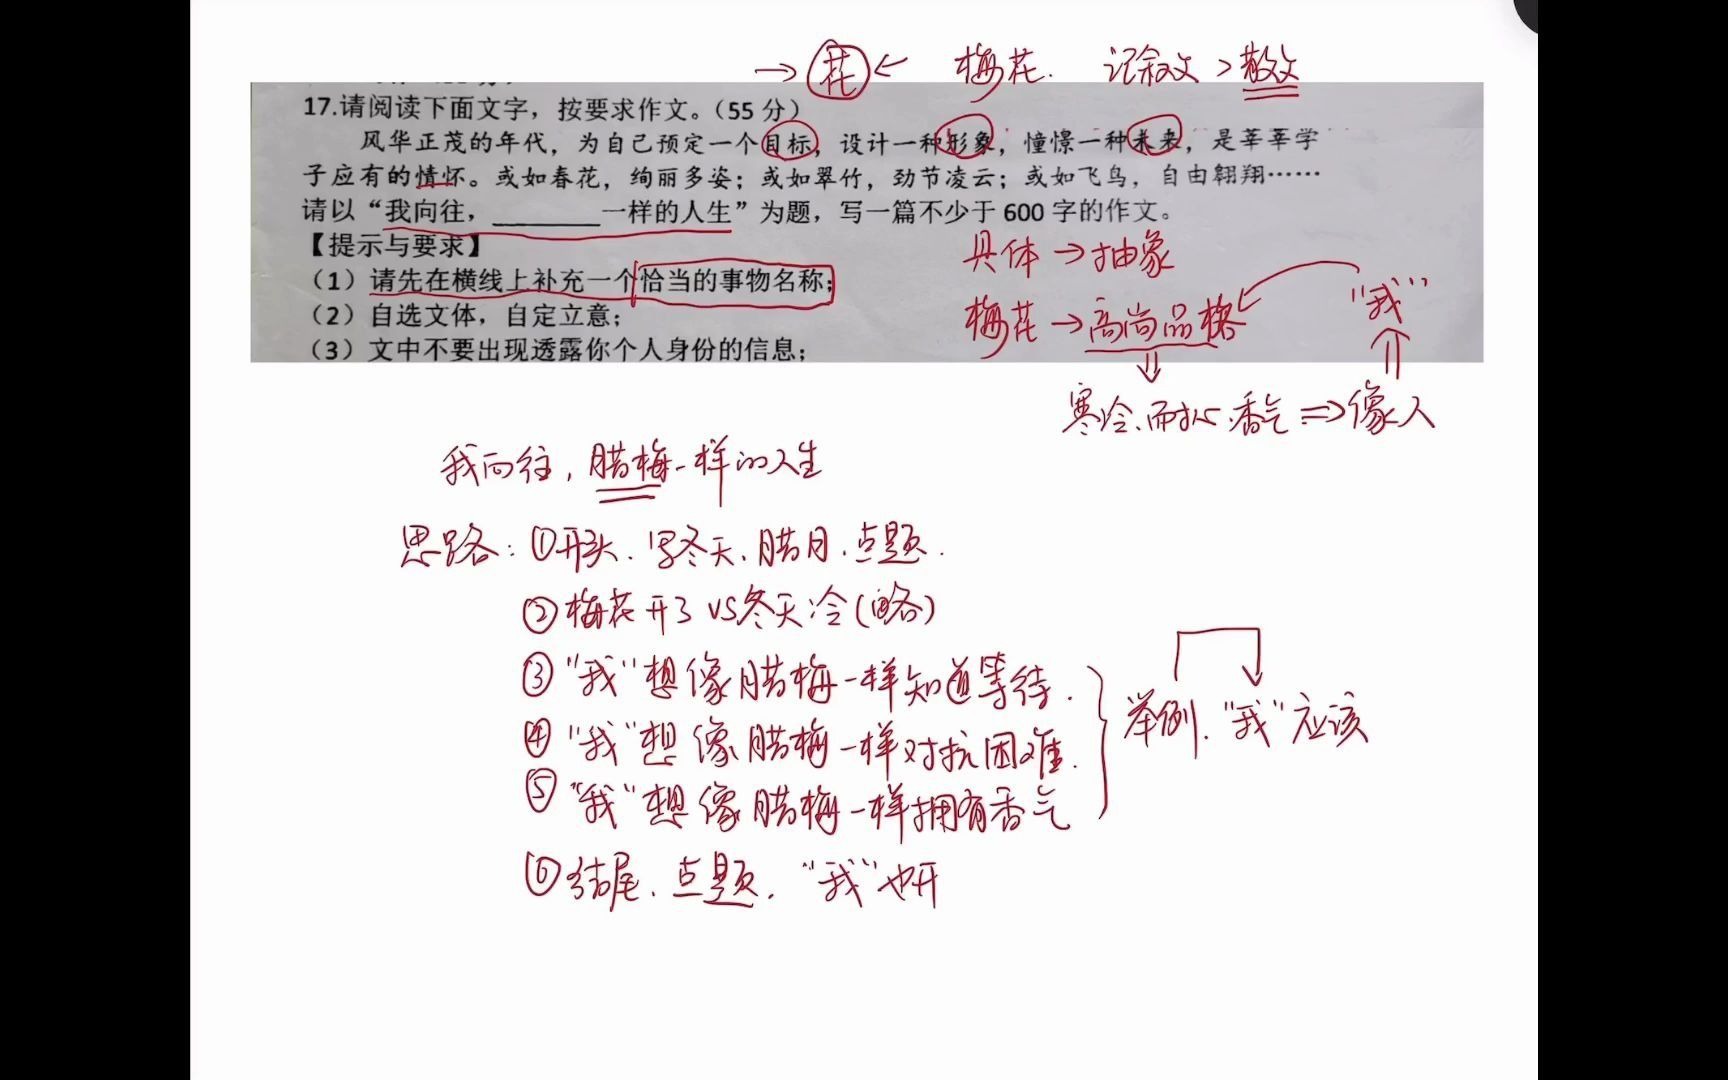 →花← 梅花. 记叙文>散文
17.请阅读下面文字，按要求作文。（55 分）
风华正茂的年代，为自己预定一个目标，设计一种形象，憧憬一种未来，是莘莘学
子应有的情怀。或如春花，绚丽多姿；或如翠竹，劲节凌云；或如飞鸟，自由翱翔……
请以“我向往，________一样的人生”为题，写一篇不少于 600 字的作文。
【提示与要求】
具体→抽象
（1）请先在横线上补充一个恰当的事物名称；
（2）自选文体，自定立意；
梅花→高尚品格 “我”
（3）文中不要出现透露你个人身份的信息；
寒冷、而抗、香气⇒像人
我向往，腊梅一样的人生
思路：①开头、写冬天、腊月、点题.
②梅花开了 VS冬天冷(略)
③“我”想像腊梅一样知道等待.
④“我”想像腊梅一样对抗困难.
⑤“我”想像腊梅一样拥有香气
举例. “我”应该
⑥结尾、点题. “我”也开